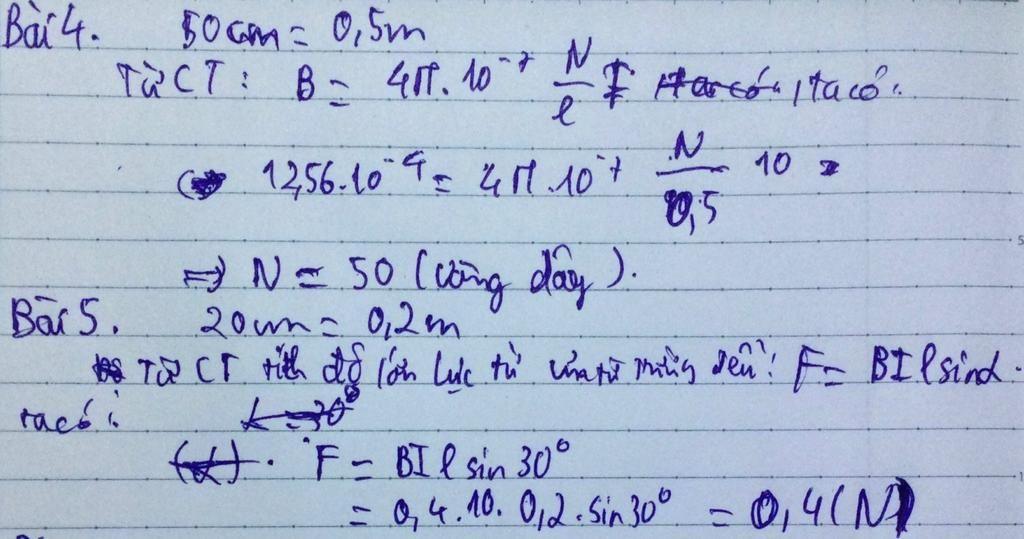 Bài 4. 50cm = 0,5m
Từ CT: B = 4π.10⁻⁷ N/l I, ta có:
12,56.10⁻⁴ = 4π.10⁻⁷ N/0,5 10
=> N = 50 (vòng dây).
Bài 5. 20cm = 0,2m
Từ CT tính độ lớn lực từ của từ trường đều: F = BIl sinα.
ta có:
F = BIl sin30⁰
= 0,4.10.0,2.sin30⁰ = 0,4(N)